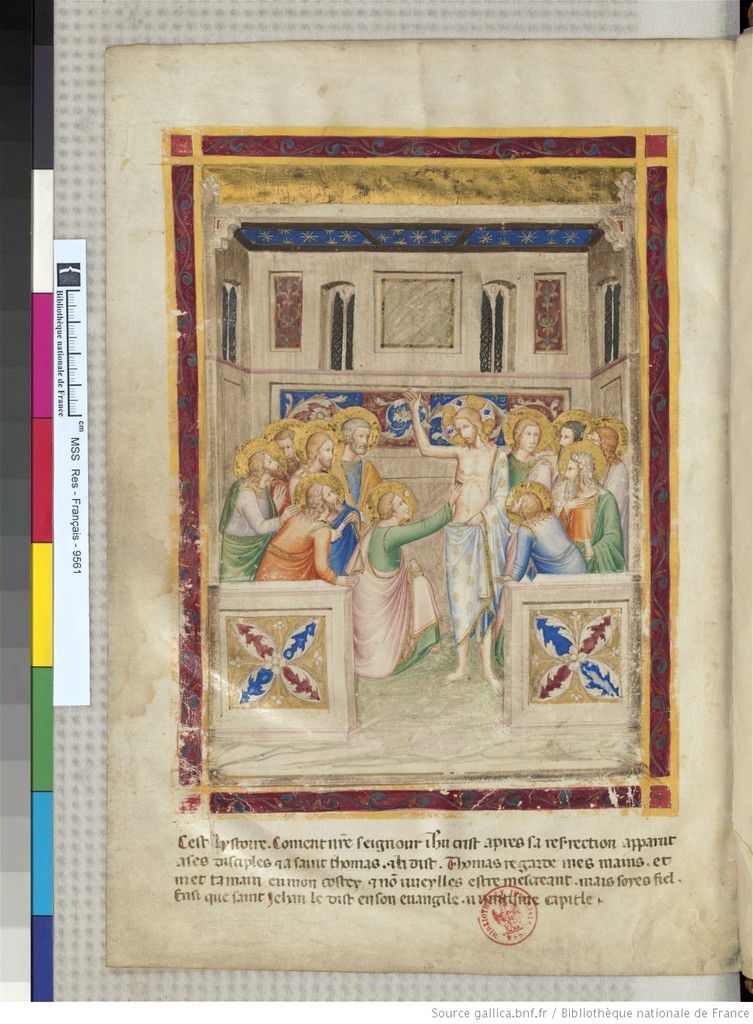 Bibliothèque nationale de France
cm
MSS Res - Français - 9561
Cest lystoire. Coment nr̄e seignour ih̄u crist apres sa resrection apparut
a ses disciples ⁊ a saint thomas. ⁊ li dist. Thomas regarde mes mains. et
met ta main en mon costey ⁊ nō vueylles estre mescreant. mais soyes fiel.
Ensi que saint Jehan le dist en son euangile. capitle.
Source gallica.bnf.fr / Bibliothèque nationale de France